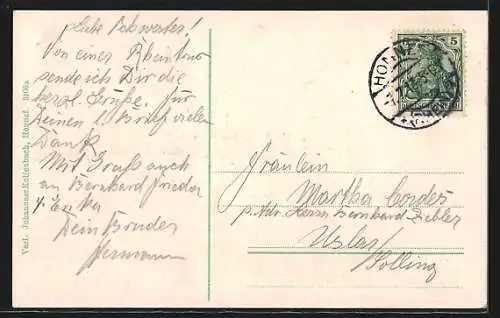 Liebe Schwester!
Von einer Rheintour
sende ich Dir die
herzl. Grüße. Für
Deinen l. Brief vielen
Dank
Mit Gruß auch
an Bernhard Frieda
Dein Bruder
Hermann
Verl. Johannes Honnef.
5
HONNEF
Fräulein
Martha Cordes
p. Adr. Herrn Bernhard
Uslar/
Solling